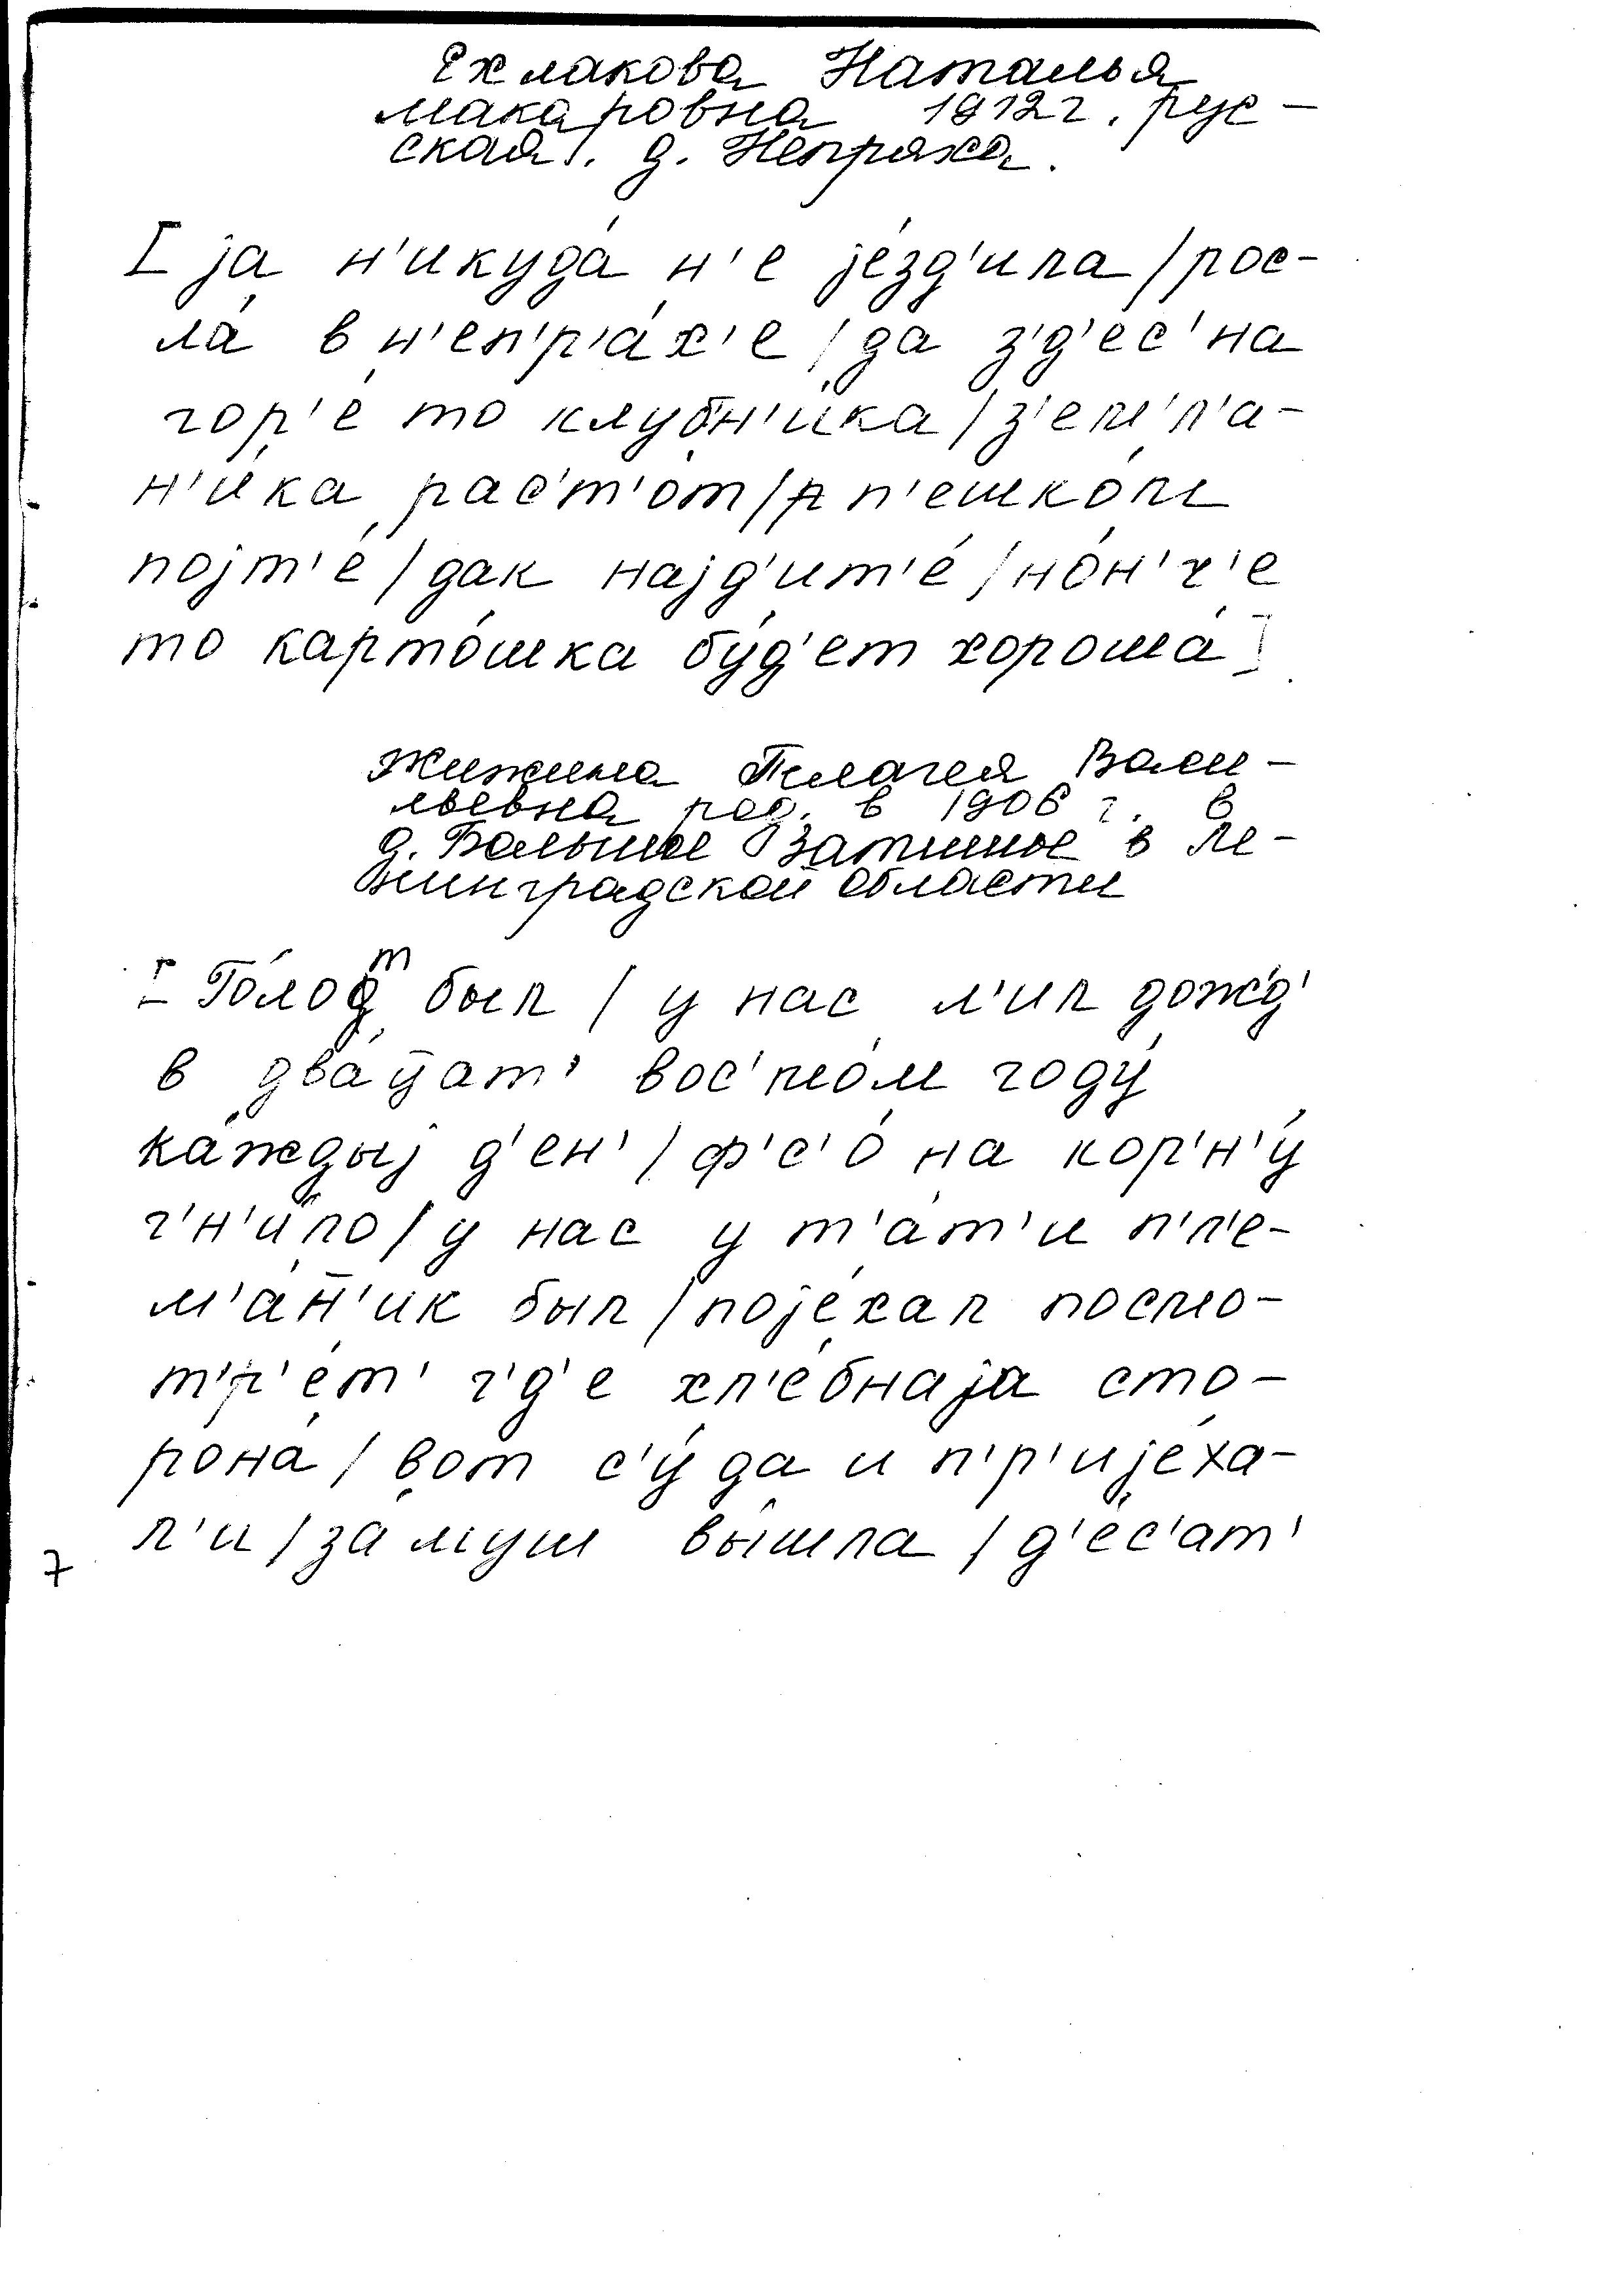 Ехлакова Наталья
Макаровна 1912г. рус-
ская. д. Непряха.
[ jа н'икуда́ н'е jе́зд'ила / рос-
ла́ в н'еп'р'а́х'е / да з'д'ес' на
гор'е́ то клубн'и́ка / з'ем'л'а-
н'и́ка рас'т'о́т / п'ешко́м
поjт'е́ / дак наjд'ит'е́ / но́н'ч'е
то карто́шка бу́д'ет хороша́ ]
Жижина Пелагея Васи-
льевна род. в 1906 г. в
д. Большое Затишное в Ле-
нинградской области
[ Го́лодт был / у нас л'ил дож'д'
в два́ц̄ат' вос'мо́м году́
ка́ждыj д'ен' / ф'с'о́ на кор'н'у́
г'н'и́ло / у нас у т'а́т'и п'л'е-
м'а́н̄'ик был / поjе́хал посмо-
т'р'е́т' г'д'е хл'е́бнаjа сто-
рона́ / вот с'у́да и п'р'иjе́ха-
л'и / за́муш вы́шла / д'е́с'ат'
7